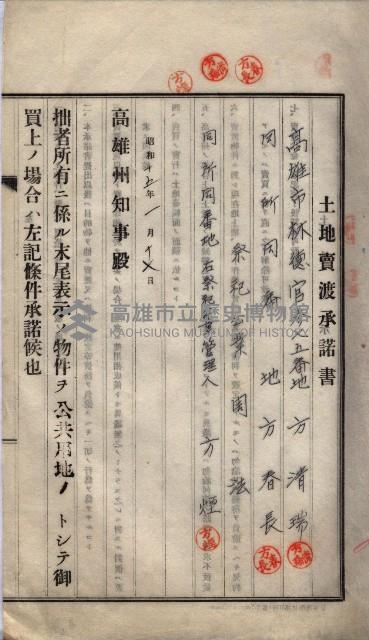 土地賣渡承諾書
高雄市林德官五番地 方清瑞
同所同番地 方春長
祭祀業 関法
同所同番地右祭祀業管理人 方煙
昭和十五年一月十七日
高雄州知事殿
拙者所有ニ係ル末尾表示ノ物件ヲ公共用地ノトシテ御
買上ノ場合ハ左記條件承諾候也
高雄市立歷史博物館
KAOHSIUNG MUSEUM OF HISTORY